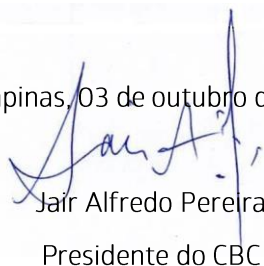 pinas, 03 de outubro d
Jair Alfredo Pereira
Presidente do CBC